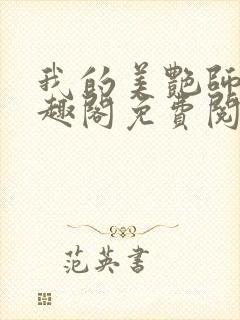 我的美艷師
趣閣免費閱
范英書